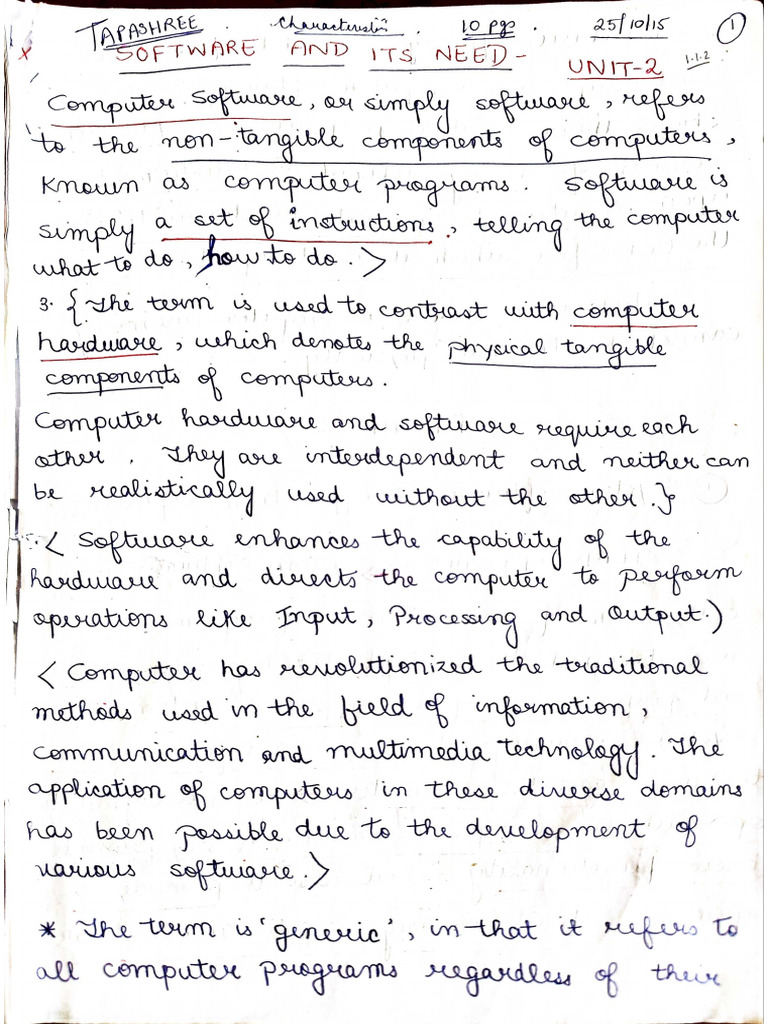 TAPASHREE Characteristics 10 pgs. 25/10/15 1
x SOFTWARE AND ITS NEED- UNIT-2 1.1.2
Computer Software, or simply software, refers
to the non-tangible components of computers,
known as computer programs. Software is
simply a set of instructions, telling the computer
what to do, how to do.>
3. {The term is used to contrast with computer
hardware, which denotes the physical tangible
components of computers.
Computer hardware and software require each
other. They are interdependent and neither can
be realistically used without the other.}
< Software enhances the capability of the
hardware and directs the computer to perform
operations like Input, Processing and Output.)
< Computer has revolutionized the traditional
methods used in the field of information,
communication and multimedia technology. The
application of computers in these diverse domains
has been possible due to the development of
various software.>
* The term is 'generic', in that it refers to
all computer programs regardless of their